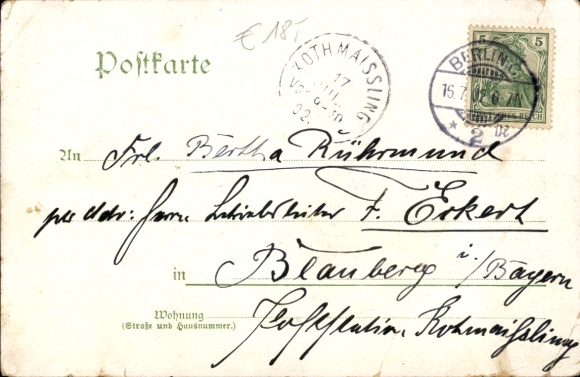 € 18,-
Postkarte
LOTHMAISSLING
17
VOR 9-10
02.
5 5
DEUTSCHES REICH
BERLIN C.
16.7.02 6-7N
* 2
An Frl. Bertha Rührmund
per Adr: Herrn Betriebsleiter F. Eckert
in Blauberg i./Bayern
Wohnung
(Straße und Hausnummer.)
Poststation Rohmaissling